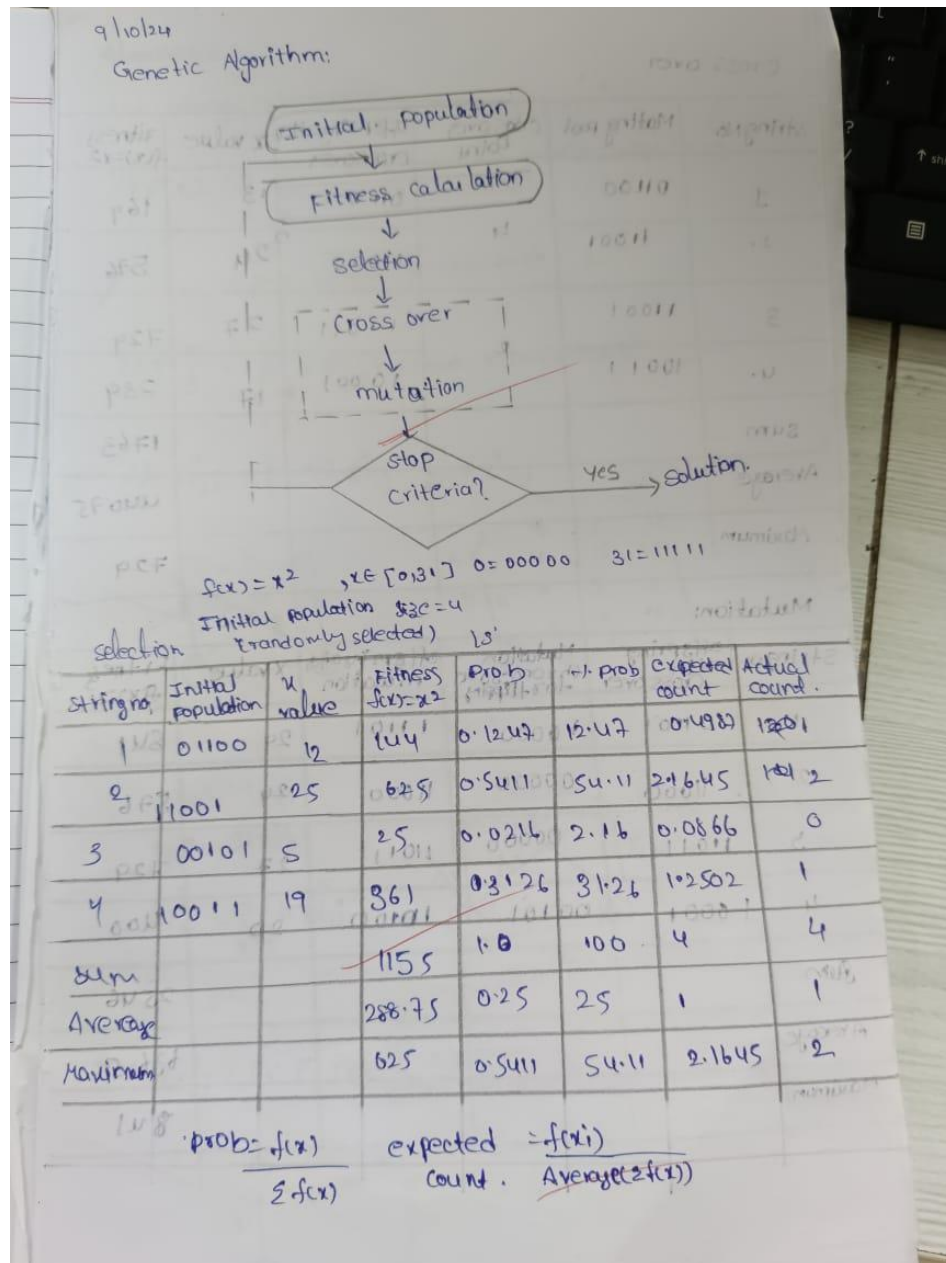 9/10/24
Genetic Algorithm:
Initial population
Fitness calculation
selection
Cross over
mutation
Stop
criteria?
yes
solution.
f(x) = x² , x∈ [0,31] 0 = 00000 31 = 11111
Initial population size = 4
selection (randomly selected)
String no. Initial population x value Fitness f(x)=x² Prob % prob Expected count Actual count.
1 01100 12 144 0.1247 12.47 0.4987 1
2 11001 25 625 0.5411 54.11 2.1645 2
3 00101 5 25 0.0216 2.16 0.0866 0
4 10011 19 361 0.3126 31.26 1.2502 1
Sum 1155 1.0 100 4 4
Average 288.75 0.25 25 1 1
Maximum 625 0.5411 54.11 2.1645 2
prob = f(x) expected = f(xi)
Σ f(x) count. Average(Σf(x))